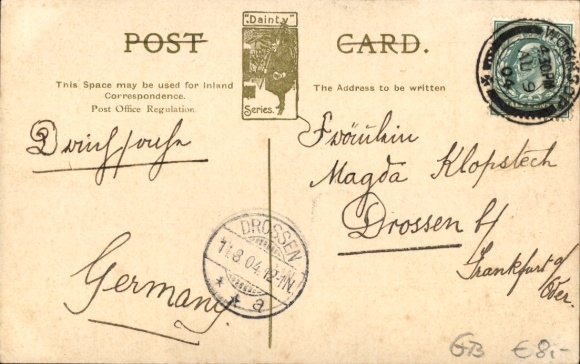 POST CARD.
"Dainty"
Series.
This Space may be used for Inland
Correspondence.
Post Office Regulation.
The Address to be written
Fräulein
Magda Klopstech
Drossen b/
Frankfurt a/
Oder.
Germany
DROSSEN
11.8.04.12-1N.
* * a
AU 9
04
GB €8,-